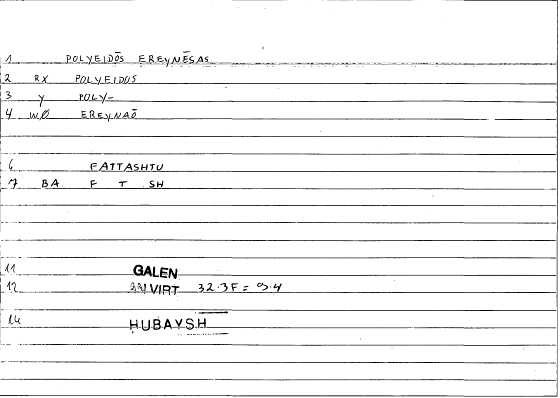 1 POLYEIDŌS EREYNĒSAS
2 RX POLYEIDOS
3 Y POLY-
4 WØ EREYNAŌ
6 FATTASHTU
7 BA F T SH
11 GALEN
12 AN VIRT 32.3F = 9.4
14 ḤUBAYSH